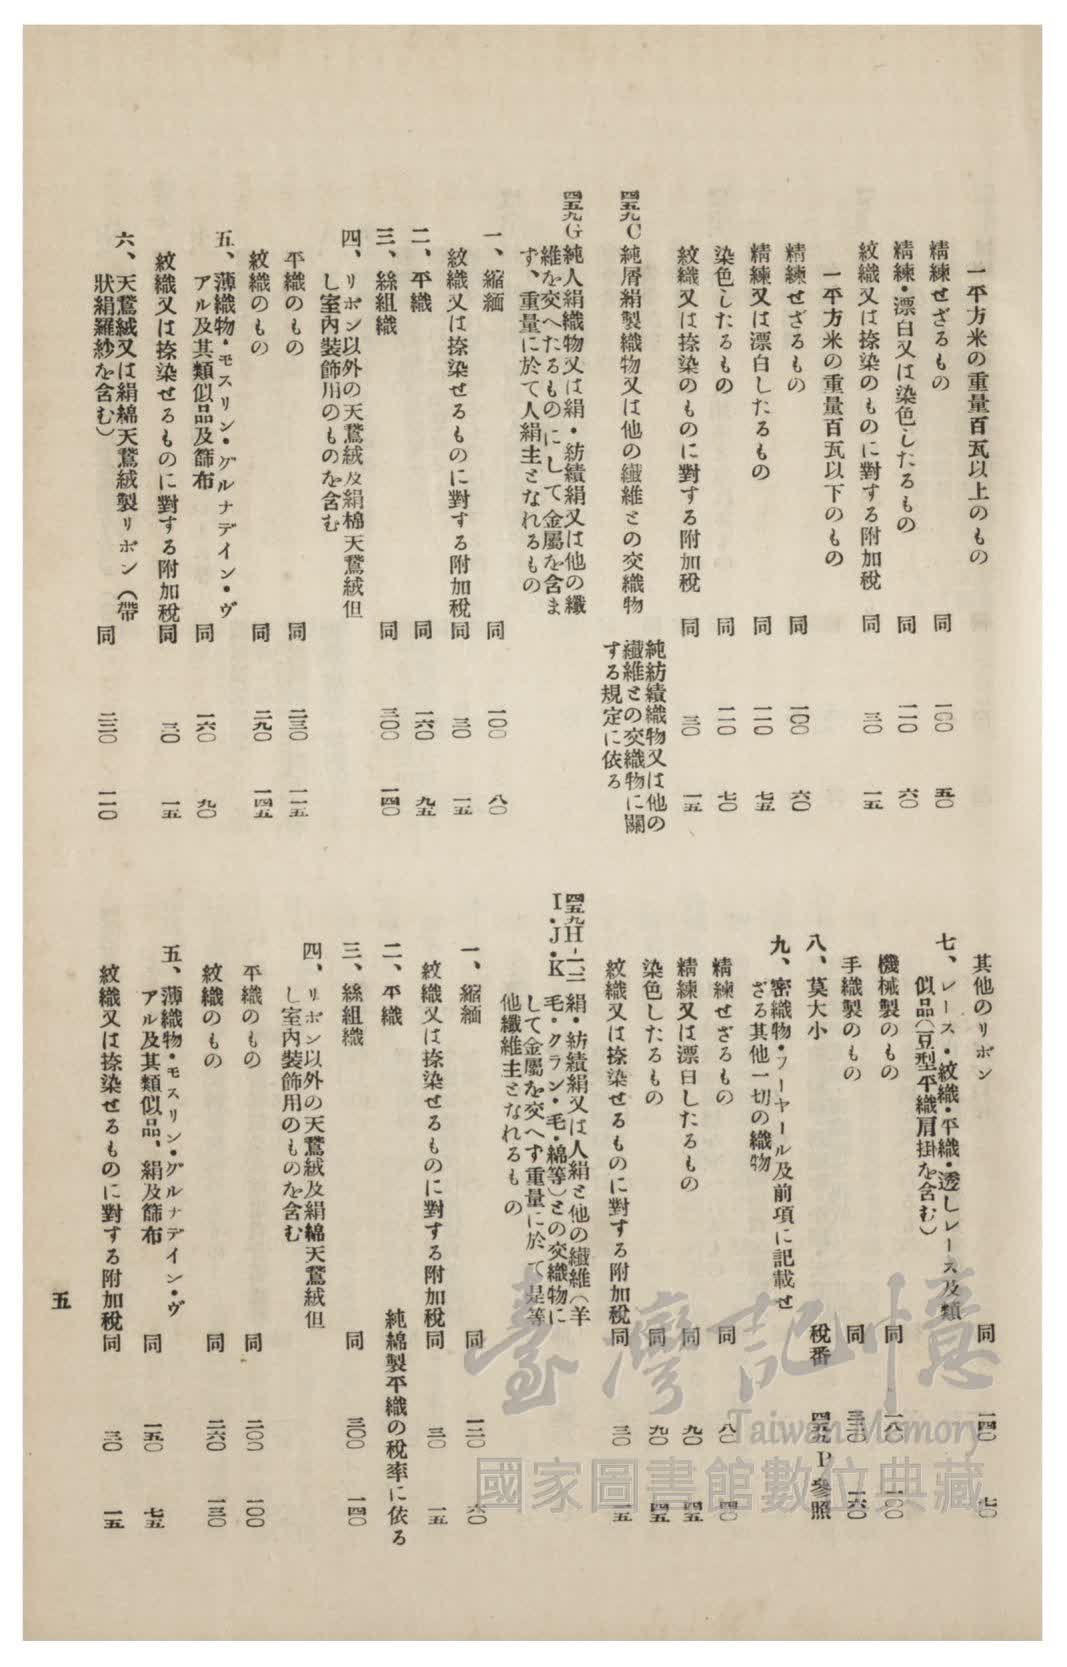 一平方米の重量百瓦以上のもの
精練せざるもの 同 一〇〇 五〇
精練・漂白又は染色したるもの 同 一二〇 六〇
紋織又は捺染のものに對する附加税 同 三〇 一五
一平方米の重量百瓦以下のもの
精練せざるもの 同 一〇〇 六〇
精練又は漂白したるもの 同 一一〇 七五
染色したるもの 同 一二〇 七〇
紋織又は捺染のものに對する附加税 同 三〇 一五
四五九C 純屑絹製織物又は他の繊維との交織物
純紡績織物又は他の
繊維との交織物に關
する規定に依る
四五九G 純人絹織物又は絹・紡績絹又は他の纖
維を交へたるものにして金屬を含ま
ず、重量に於て人絹主となれるもの
一、縮緬 同 一〇〇 八〇
紋織又は捺染せるものに對する附加税 同 三〇 一五
二、平織 同 一六〇 九五
三、絲組織 同 三〇〇 一四〇
四、リボン以外の天鵞絨及絹棉天鵞絨但
し室内裝飾用のものを含む
平織のもの 同 二三〇 一一五
紋織のもの 同 二九〇 一四五
五、薄織物・モスリン・グルナデイン・ヴ
アル及其類似品及篩布 同 一六〇 九〇
紋織又は捺染せるものに對する附加税 同 三〇 一五
六、天鵞絨又は絹綿天鵞絨製リボン（帶
狀絹羅紗を含む） 同 二二〇 一一〇
其他のリボン 同 一四〇 七〇
七、レース・紋織・平織・透しレース及類
似品（豆型平織肩掛を含む）
機械製のもの 同 一八〇 一〇〇
手織製のもの 同 三二〇 一六〇
八、莫大小 税番 四五九P參照
九、密織物・フーヤール及前項に記載せ
ざる其他一切の織物
精練せざるもの 同 八〇 四〇
精練又は漂白したるもの 同 九〇 四五
染色したるもの 同 九〇 四五
紋織又は捺染せるものに對する附加税 同 三〇 一五
四五九H-一、二
I・J・K
絹・紡績絹又は人絹と他の繊維（羊
毛・クラン・毛・綿等）との交織物に
して金屬を交へず重量に於て是等
他纖維主となれるもの
一、縮緬 同 一二〇 六〇
紋織又は捺染せるものに對する附加税 同 三〇 一五
二、平織 純綿製平織の税率に依る
三、絲組織 同 三〇〇 一四〇
四、リボン以外の天鵞絨及絹綿天鵞絨但
し室内裝飾用のものを含む
平織のもの 同 二〇〇 一〇〇
紋織のもの 同 二六〇 一三〇
五、薄織物・モスリン・グルナデイン・ヴ
アル及其類似品、絹及篩布 同 一五〇 七五
紋織又は捺染せるものに對する附加税 同 三〇 一五
五
臺灣記憶
Taiwan Memory
國家圖書館數位典藏